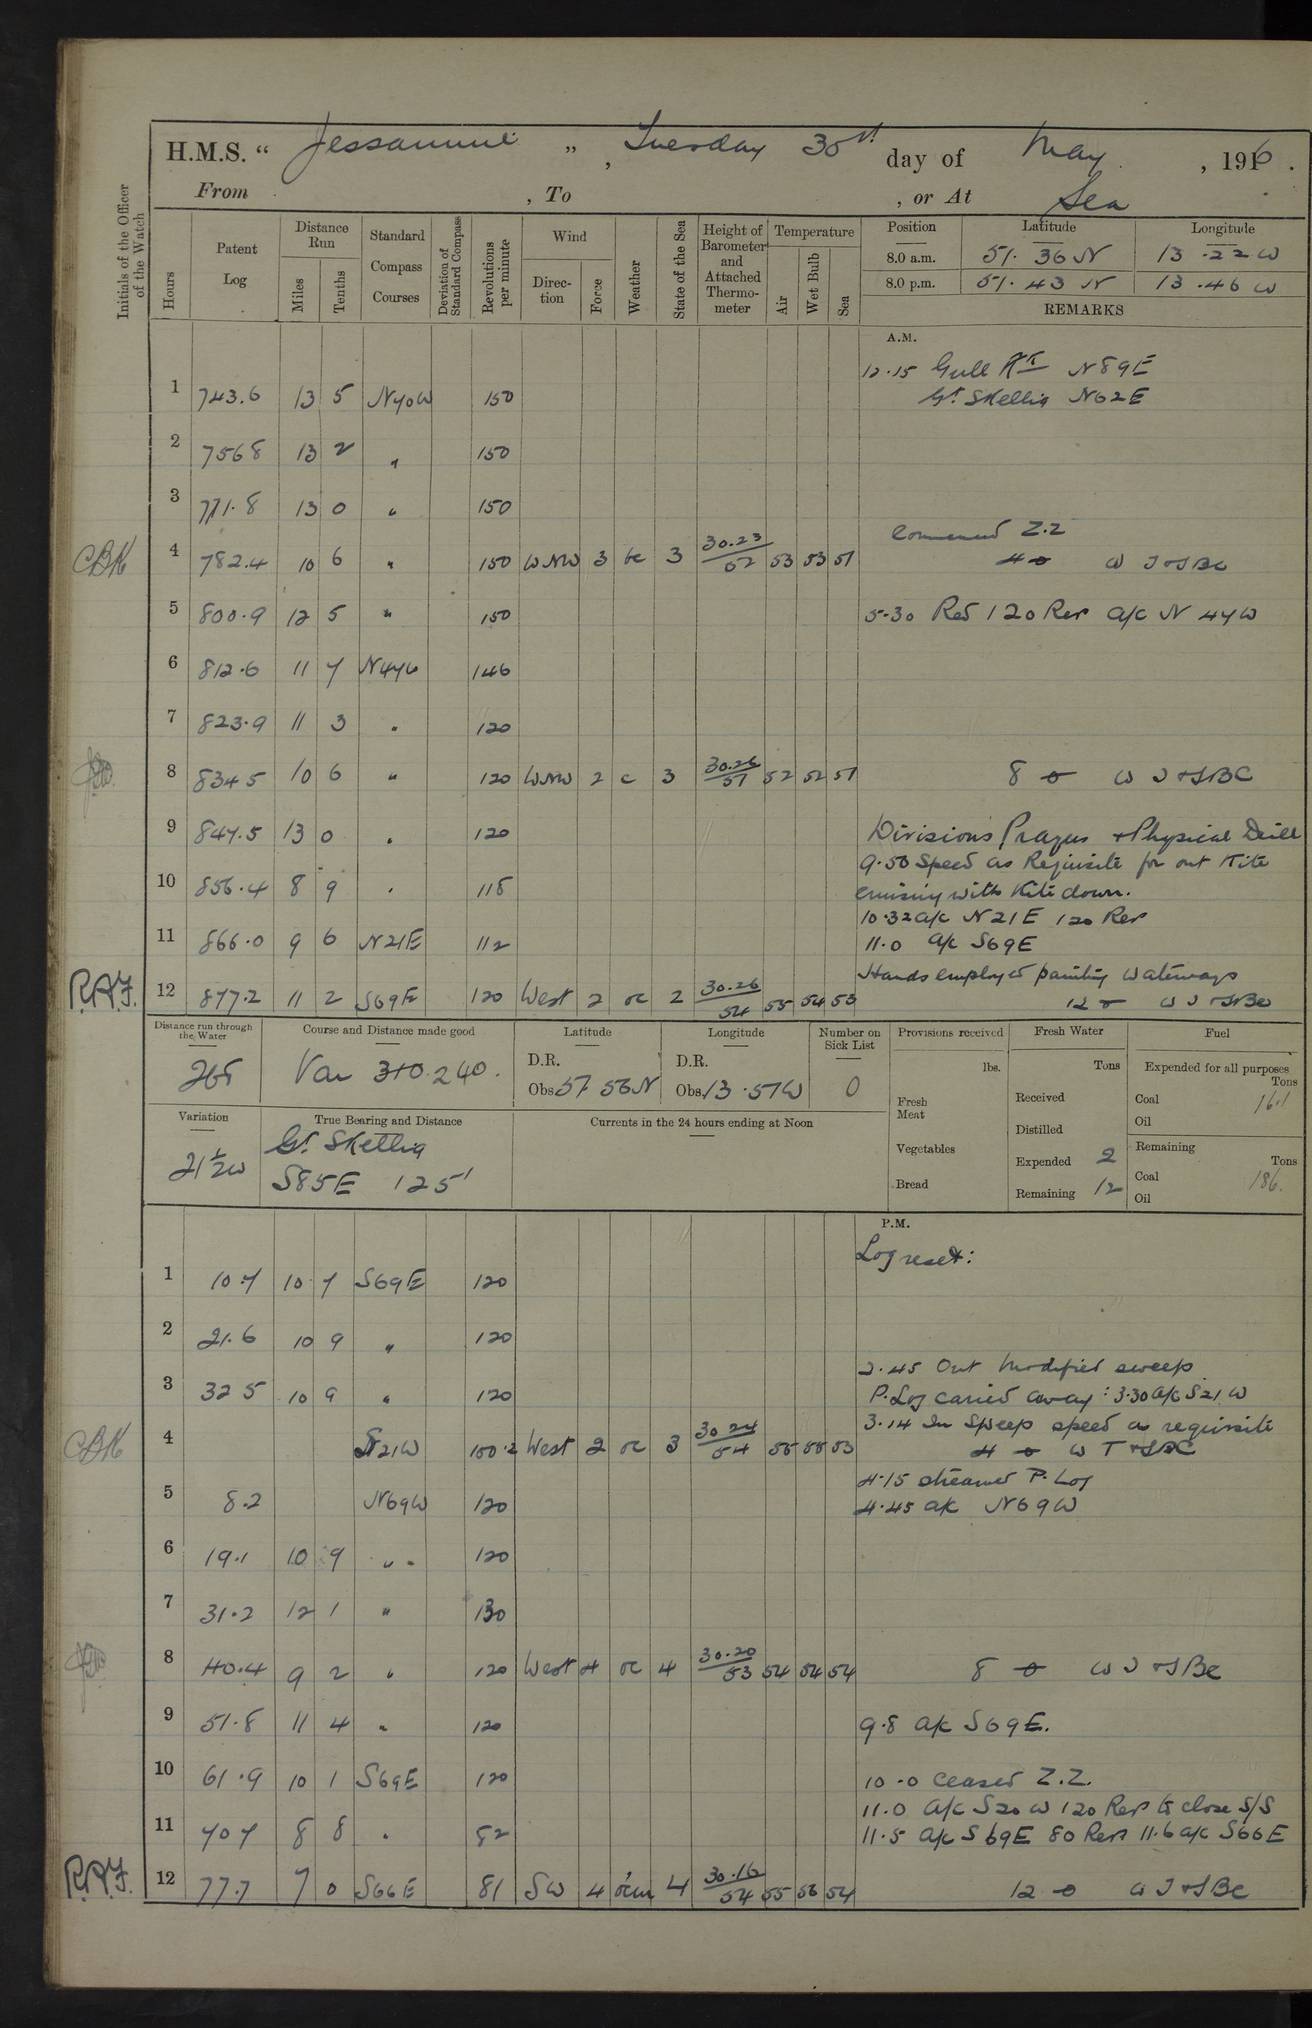 H.M.S. “ Jessamine ” , Tuesday 30th day of May , 1916 .
From , To , or At Sea
Initials of the Officer of the Watch
Hours
Patent Log
Distance Run
Miles
Tenths
Standard Compass Courses
Deviation of Standard Compass
Revolutions per minute
Wind
Direction
Force
Weather
State of the Sea
Height of Barometer and Attached Thermometer
Temperature
Air
Wet Bulb
Sea
Position Latitude Longitude
8.0 a.m. 51. 36 N 13 . 22 W
8.0 p.m. 51. 43 N 13 . 46 W
REMARKS
A.M.
12.15 Gull Rk N89E
1 743.6 13 5 N70W 150 Gt Skellig N62E
2 756 8 13 2 " 150
3 771.8 13 0 " 150
Commenced Z.Z
CBK 4 782.4 10 6 " 150 WNW 3 bc 3 30.23/52 53 53 51 4 0
5 800.9 12 5 " 150 5.30 Red 120 Rev a/c N 47 W
6 812.6 11 7 N47W 146
7 823.9 11 3 " 120
8 834 5 10 6 " 120 WNW 2 c 3 30.26/51 52 52 51 8 0
9 847.5 13 0 " 120 Divisions Prayers + Physical Drill
9.50 Speed as Requisite for out Kite
10 856.4 8 9 " 118 cruising with Kite down.
10.32 a/c N21E 120 Rev
11 866.0 9 6 N21E 112 11.0 a/c S69E
Hands employed painting waterways
R.A.F. 12 877.2 11 2 S69E 120 West 2 oc 2 30.26/54 55 54 53 12 0
Distance run through the Water
265
Course and Distance made good
Var 310.240.
Latitude
D.R.
Obs 51 56 N
Longitude
D.R.
Obs. 13 . 51 W
Number on Sick List
0
Variation
21½W
True Bearing and Distance
Gt Skellig
S85E 125'
Currents in the 24 hours ending at Noon
Provisions received
lbs.
Fresh Meat
Vegetables
Bread
Fresh Water
Tons
Received
Distilled
Expended 2
Remaining 12
Fuel
Expended for all purposes
Tons
Coal 16.1
Oil
Remaining
Tons
Coal 186.
Oil
P.M.
Log reset:
1 10.7 10 7 S69E 120
2 21.6 10 9 " 120
2.45 Out modified sweep
3 32 5 10 9 " 120 P. Log carried away: 3.30 a/c S21W
3.14 In Sweep speed as requisite
CBK 4 S21W 100.2 West 2 oc 3 30 24/54 55 55 53 4 0
4.15 streamed P. Log
5 8.2 N69W 120 4.45 a/c N69W
6 19.1 10 9 " 120
7 31.2 12 1 " 130
8 40.4 9 2 " 120 West 4 oc 4 30.20/53 54 54 54 8 0
9 51.8 11 4 " 120 9.8 a/c S69E.
10 61.9 10 1 S69E 120 10.0 Ceased Z.Z.
11.0 a/c S20W 120 Revs to close S/S
11 70 7 8 8 " 82 11.5 a/c S69E 80 Revs 11.6 a/c S66E
R.A.F. 12 77.7 7 0 S66E 81 SW 4 ocm 4 30.16/54 55 56 54 12 0